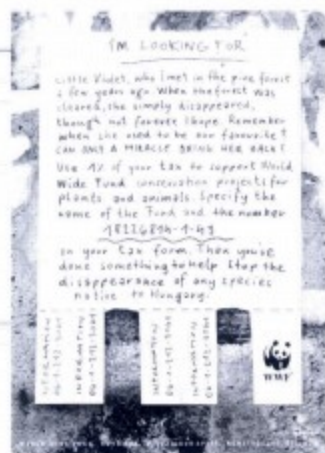 I'M LOOKING FOR
Little Violet, who I met in the pine forest
a few years ago. When the forest was
cleared, she simply disappeared,
though not forever I hope. Remember
when she used to be our favourite?
CAN ONLY A MIRACLE BRING HER BACK?
Use 1% of your tax to support World
Wide Fund conservation projects for
plants and animals. Specify the
name of the Fund and the number
18226814-1-41
on your tax form. Then you've
done something to help stop the
disappearance of any species
native to Hungary.
INFORMATION
INFORMATION
INFORMATION
INFORMATION
WWF